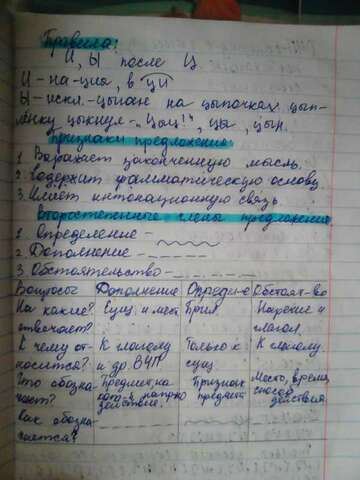 Правила:
И, Ы после Ц
И - на -ция, в ци
Ы - искл. - цыган на цыпочках цып-
лёнку цыкнул - "Цыц!", цы, цын.
Признаки предложения:
1. Выражает законченную мысль.
2. Содержит грамматическую основу
3. Имеет интонационную связь.
Второстепенные члены предложения
1. Определение -
2. Дополнение -
3. Обстоятельство -
Вопросы Дополнение Опреде-е Обстоят-во
На какие? Сущ. и мест Прил. Наречие и
отвечает? глагол.
К чему от- К глаголу Только к К глаголу.
носится? и др. ВЧП сущ
Что обозна- Предмет, на Признак Место, время,
чает? кого-й направ предмет способ
действие. действия.
Как обозна-
чается?